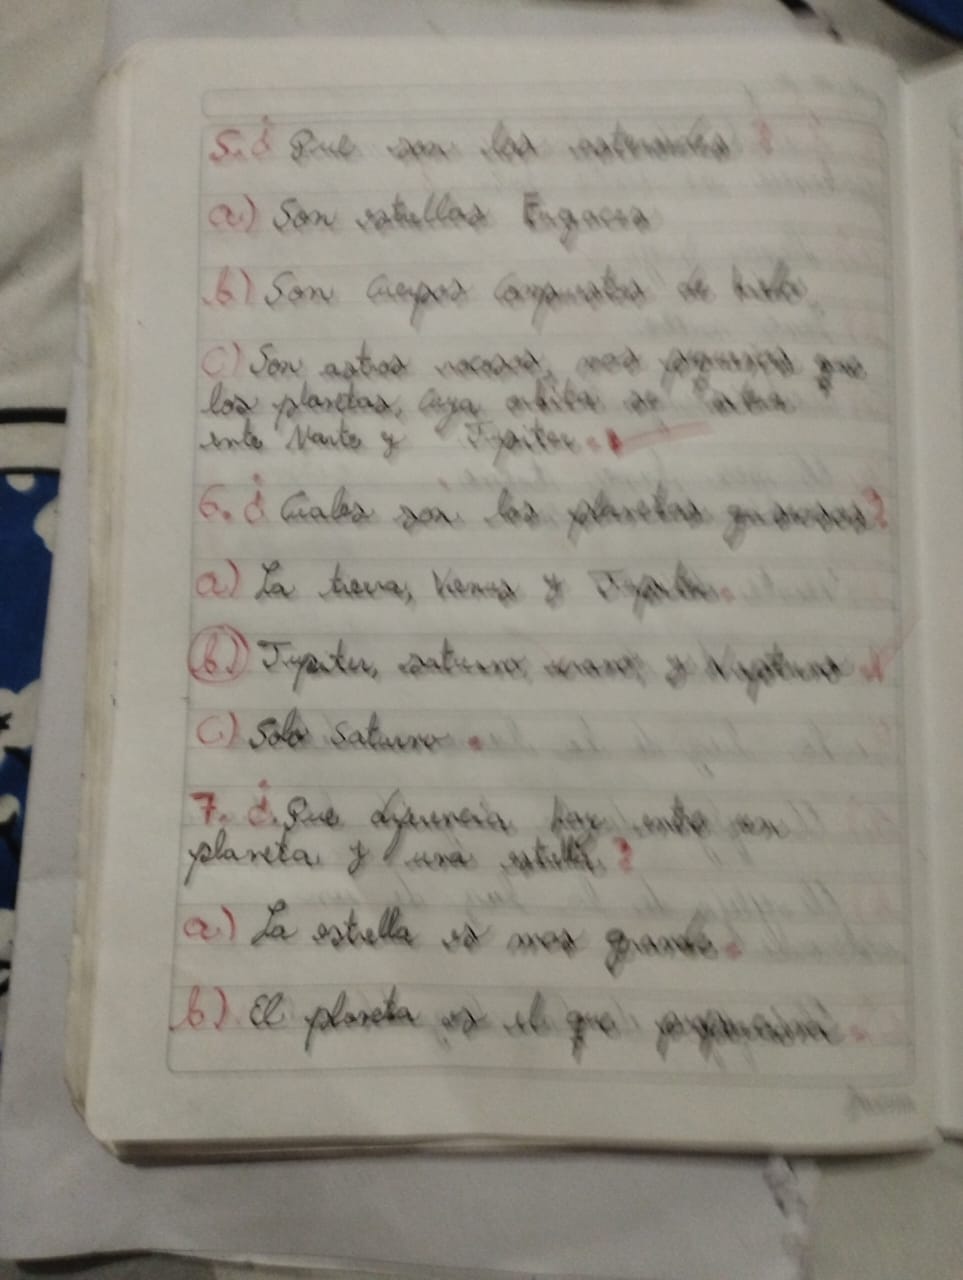 5. ¿Que son los asteroides?
a) Son estrellas Fugaces
b) Son cuerpos compuestos de hielo
c) Son astros rocosos, mas pequeños que
los planetas, cuya orbita se
ente Marte y Jupiter.
6. ¿Cuales son los planetas gaseosos?
a) La tierra, Venus y Jupiter.
b) Jupiter, saturno, urano, y Neptuno
c) Solo Saturno.
7. ¿Que diferencia hay entre un
planeta y una estrella?
a) La estrella es mas grande.
b) El planeta es el que